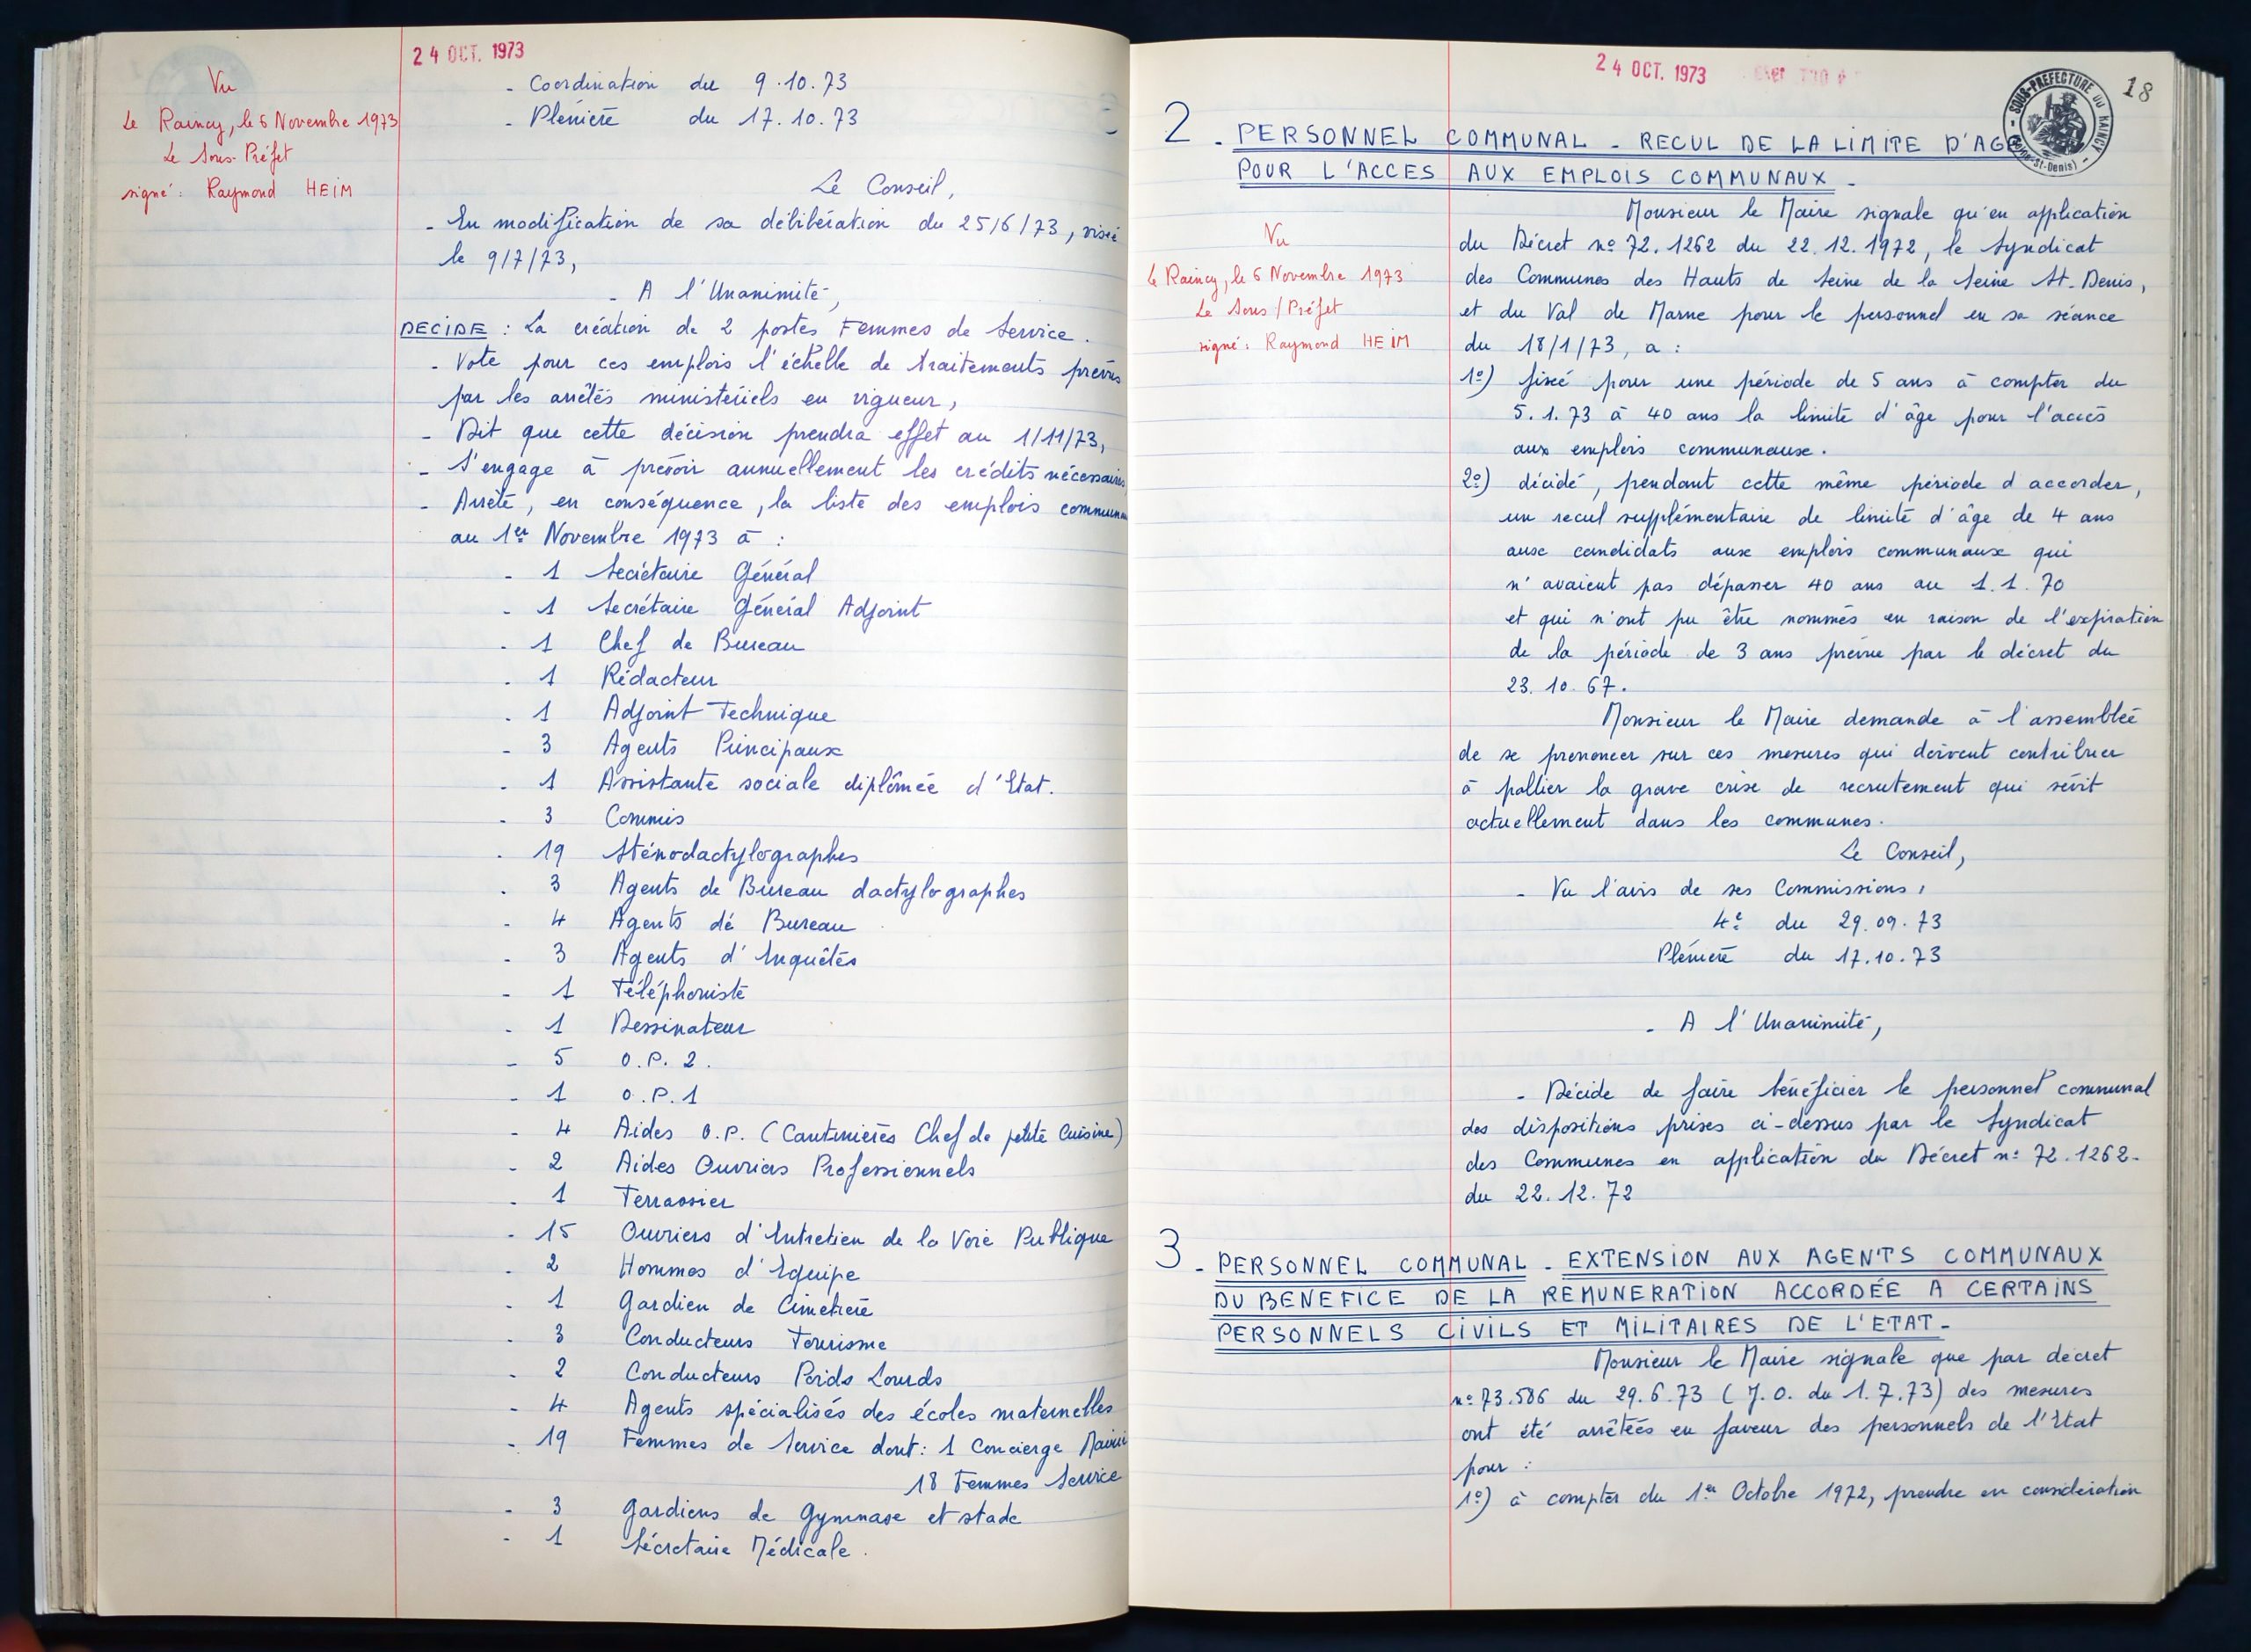 24 OCT. 1973
Vu
Le Raincy, le 6 Novembre 1973
Le Sous-Préfet
signé: Raymond HEIM
- Coordination du 9.10.73
- Plénière du 17.10.73
Le Conseil,
- En modification de sa délibération du 25/6/73, visée
le 9/7/73,
- A l'Unanimité,
DECIDE : La création de 2 postes Femmes de Service.
- Vote pour ces emplois l'échelle de traitements prévus
par les arrêtés ministériels en vigueur,
- Dit que cette décision prendra effet au 1/11/73,
- S'engage à prévoir annuellement les crédits nécessaires
- Arrête, en conséquence, la liste des emplois
au 1er Novembre 1973 à :
- 1 Secrétaire Général
- 1 Secrétaire Général Adjoint
- 1 Chef de Bureau
- 1 Rédacteur
- 1 Adjoint Technique
- 3 Agents Principaux
- 1 Assistante sociale diplômée d'Etat.
- 3 Commis
- 19 Sténodactylographes
- 3 Agents de Bureau dactylographes
- 4 Agents de Bureau
- 3 Agents d'Enquêtes
- 1 Téléphoniste
- 1 Dessinateur
- 5 O.P. 2.
- 1 O.P.1
- 4 Aides O.P. (Cantinières Chef de petite Cuisine)
- 2 Aides Ouvriers Professionnels
- 1 Terrassier
- 15 Ouvriers d'Entretien de la Voie Publique
- 2 Hommes d'Equipe
- 1 Gardien de Cimetière
- 3 Conducteurs Tourisme
- 2 Conducteurs Poids Lourds
- 4 Agents spécialisés des écoles maternelles
- 19 Femmes de Service dont: 1 Concierge Mairie
18 Femmes Service
- 3 Gardiens de Gymnase et stade
- 1 Sécretaire Médicale.
24 OCT. 1973
SOUS-PREFECTURE DU RAINCY
18
2 - PERSONNEL COMMUNAL - RECUL DE LA LIMITE D'AGE
POUR L'ACCES AUX EMPLOIS COMMUNAUX -
Vu
Le Raincy, le 6 Novembre 1973
Le Sous/Préfet
signé: Raymond HEIM
Monsieur le Maire signale qu'en application
du Décret nº 72.1262 du 22.12.1972, le Syndicat
des Communes des Hauts de Seine de la Seine St-Denis,
et du Val de Marne pour le personnel en sa séance
du 18/1/73, a :
1º) fixé pour une période de 5 ans à compter du
5.1.73 à 40 ans la limite d'âge pour l'accès
aux emplois communaux.
2º) décidé, pendant cette même période d'accorder,
un recul supplémentaire de limite d'âge de 4 ans
aux candidats aux emplois communaux qui
n'avaient pas dépasser 40 ans au 1.1.70
et qui n'ont pu être nommés en raison de l'expiration
de la période de 3 ans prévue par le décret du
23.10.67.
Monsieur le Maire demande à l'assemblée
de se prononcer sur ces mesures qui doivent contribuer
à pallier la grave crise de recrutement qui sévit
actuellement dans les communes.
Le Conseil,
- Vu l'avis de ses Commissions,
4e du 29.09.73
Plénière du 17.10.73
- A l'Unanimité,
- Décide de faire bénéficier le personnel communal
des dispositions prises ci-dessus par le Syndicat
des Communes en application du Décret nº 72.1262.
du 22.12.72
3 - PERSONNEL COMMUNAL - EXTENSION AUX AGENTS COMMUNAUX
DU BENEFICE DE LA REMUNERATION ACCORDÉE A CERTAINS
PERSONNELS CIVILS ET MILITAIRES DE L'ETAT -
Monsieur le Maire signale que par décret
nº 73.586 du 29.6.73 (J.O. du 1.7.73) des mesures
ont été arrêtées en faveur des personnels de l'Etat
pour :
1º) à compter du 1er Octobre 1972, prendre en considération